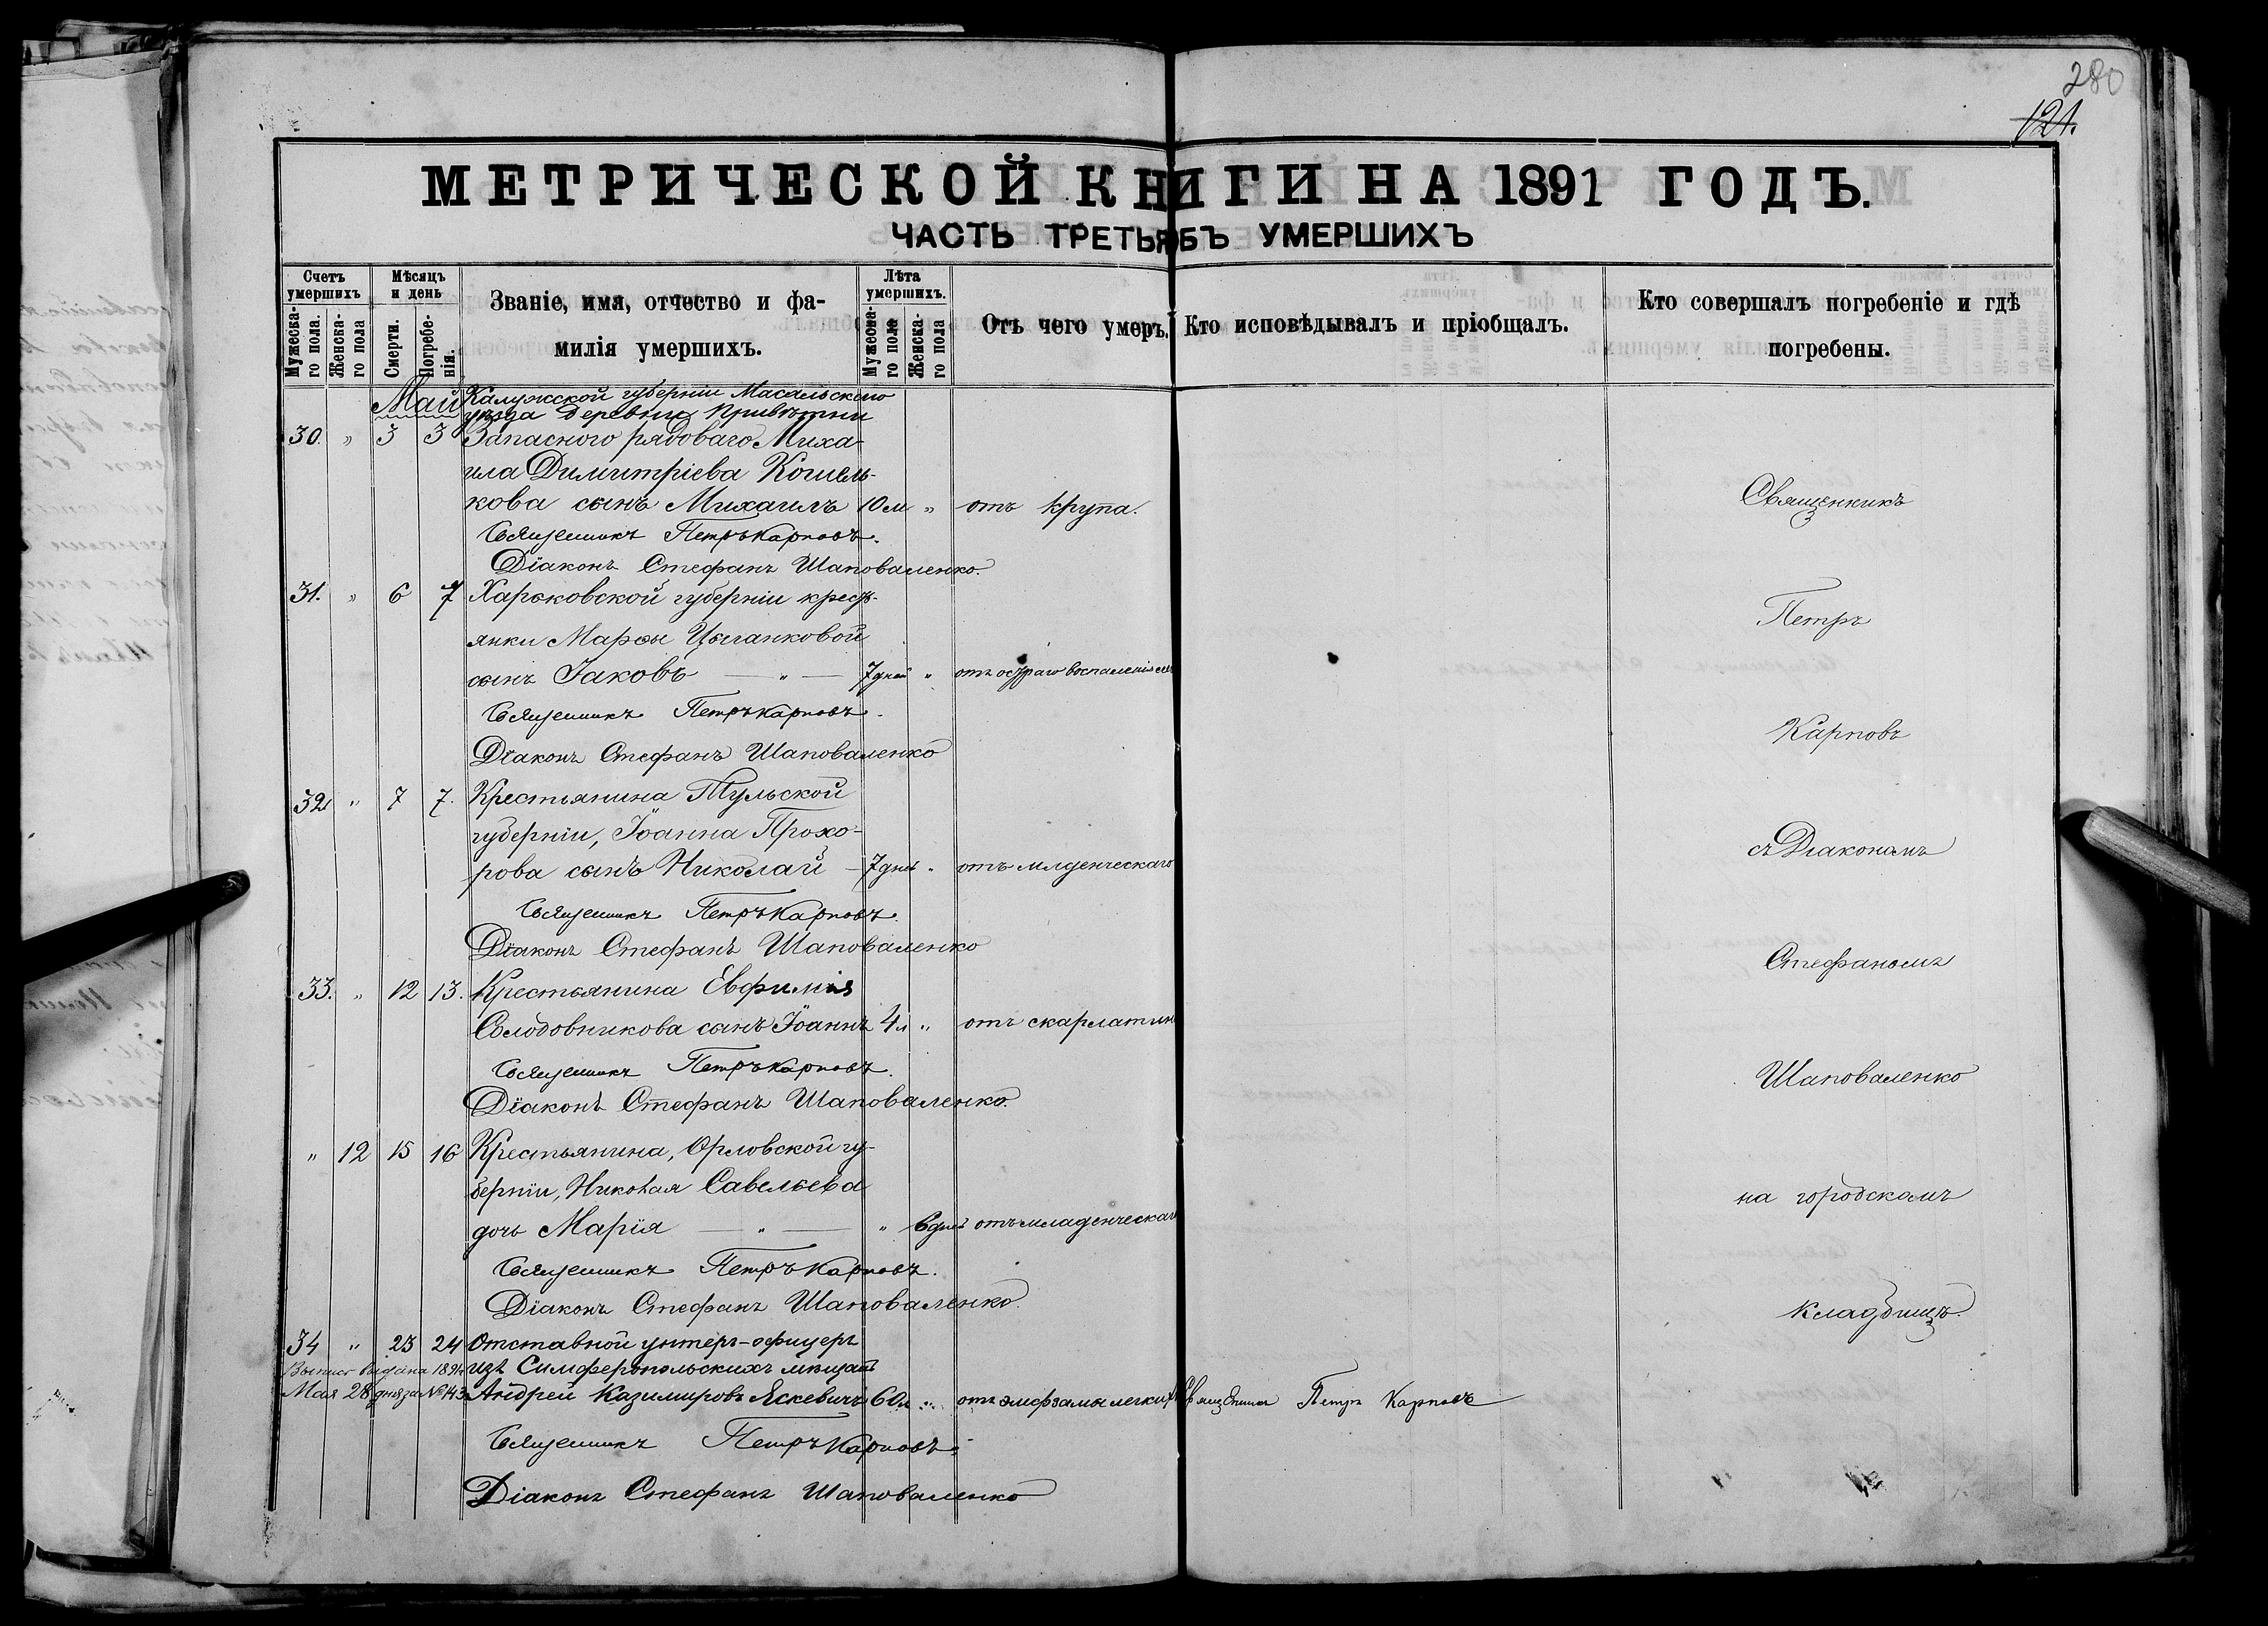 280
121.
МЕТРИЧЕСКОЙ КНИГИ НА 1891 ГОДЪ.
ЧАСТЬ ТРЕТЬЯ БЪ УМЕРШИХЪ
Счетъ умершихъ
Мужеска-го пола.
Женска-го пола
Мѣсяцъ и день
Смерти.
Погребе-нія.
Званіе, имя, отчество и фа-
милія умершихъ.
Лѣта умершихъ.
Мужеска-го пола
Женска-го пола
Отъ чего умеръ.
Кто исповѣдывалъ и пріобщалъ.
Кто совершалъ погребеніе и гдѣ
погребены.
Май Калужской губерніи Масальскаго
уѣзда деревни
30. " 3 3 Запаснаго рядоваго Миха-
ила Димитріева Кошель-
кова сынъ Михаилъ 10 м " отъ крупа.
Священникъ Петръ Карповъ.
Діаконъ Стефанъ Шаповаленко.
31. " 6 7 Харьковской губерніи кресть-
янки Марѳы Цыганковой
сынъ Іаковъ — " — 7 дней " отъ остраго воспаленія
Священникъ Петръ Карповъ.
Діаконъ Стефанъ Шаповаленко
32 " 7 7. Крестьянина Тульской
губерніи, Іоанна Прохо-
рова сынъ Николай — 7 дней " отъ млденческаго
Священникъ Петръ Карповъ.
Діаконъ Стефанъ Шаповаленко
33. " 12 13. Крестьянина Евфимія
Солодовникова сынъ Іоаннъ 4 л " отъ скарлатин
Священникъ Петръ Карповъ.
Діаконъ Стефанъ Шаповаленко.
" 12 15 16 Крестьянина, Орловской гу-
берніи, Николая Савельева
дочь Марія — " — " 6 дней отъ младенческаго
Священникъ Петръ Карповъ.
Діаконъ Стефанъ Шаповаленко.
34 " 23 24 Отставной унтеръ-офицеръ
Выпись выдана 1891 изъ Симферопольскихъ мѣщанъ
Мая 28 дня за № 143 Андрей Казимировъ Яскевичъ 60 л " отъ эмфземы легкихъ Священникъ Петръ Карповъ
Священникъ Петръ Карповъ.
Діаконъ Стефанъ Шаповаленко
Священникъ
Петръ
Карповъ
съ Діакономъ
Стефаномъ
Шаповаленко
на городскомъ
кладбищѣ.